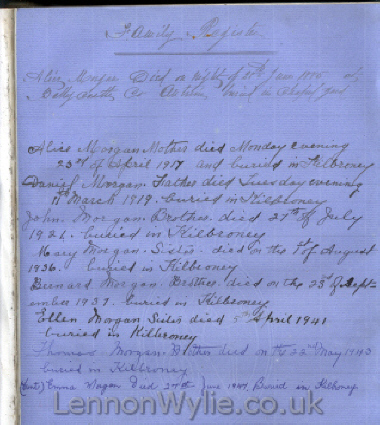 Family Register
Alice Morgan Died on night of June at
Ballynutt Co buried in
Alice Morgan Mother died Monday evening
23rd of April 1917 and buried in Kilbroney
Daniel Morgan. Father died Tuesday evening
March 1919. buried in Kilbroney
John Morgan. Brother. died 27th of July
1921. buried in Kilbroney
Mary Morgan. Sister. died on the 1st of August
1936. buried in Kilbroney
Bernard Morgan. Brother. died on the 23rd of Sept-
ember 1937. buried in Kilbroney
Ellen Morgan Sister died 5th April 1941
buried in Kilbroney
Thomas Morgan. Brother died on the 22nd May 1943
buried in Kilbroney
(Aunt) Emma Morgan Died 27th June 1947, Buried in Kilbroney.
LennonWylie.co.uk